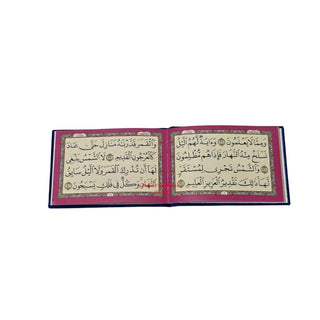 وَمِمَّا لَا يَعْلَمُونَ ۝ وَءَايَةٌ لَّهُمُ الَّيْلُ
نَسْلَخُ مِنْهُ النَّهَارَ فَإِذَا هُم مُّظْلِمُونَ
۝ وَالشَّمْسُ تَجْرِى لِمُسْتَقَرٍّ
لَّهَا ذَٰلِكَ تَقْدِيرُ الْعَزِيزِ الْعَلِيمِ ۝
وَالْقَمَرَ قَدَّرْنَٰهُ مَنَازِلَ حَتَّىٰ عَادَ
كَالْعُرْجُونِ الْقَدِيمِ ۝ لَا الشَّمْسُ يَنبَغِى
لَهَا أَن تُدْرِكَ الْقَمَرَ وَلَا الَّيْلُ سَابِقُ
النَّهَارِ وَكُلٌّ فِى فَلَكٍ يَسْبَحُونَ ۝